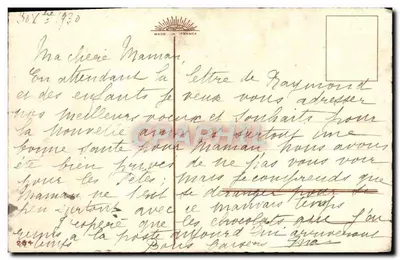 Ma chère Maman,
En attendant la lettre de Raymond
et des enfants je veux vous adresser
nos meilleurs voeux et souhaits pour
la nouvelle année surtout une
bonne santé pour Maman nous avons
été bien privés de ne pas vous voir
pour les fêtes, mais je comprends que
Maman ne doit se déranger pour si
peu surtout avec ce mauvais temps
J'espère que les chocolats que j'ai
remis à la poste aujourd'hui arriveront
à temps Bons baisers